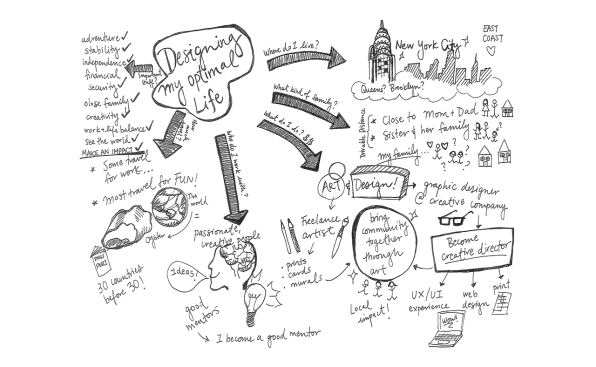 Designing
my optimal
Life
Important
stuff?
adventure ✓
stability ✓
independence ✓
financial
security ✓
close family ✓
creativity ✓
work + life balance ✓
See the world ✓
MAKE AN IMPACT ✓
Where do I live?
New York City
EAST
COAST
Queens? Brooklyn?
What kind of family?
Drivable Distance
* Close to Mom + Dad
* Sister & her family
my family...
? ? ?
What do I do? $$
ART
&
Design!
graphic designer
@ creative company
Become
creative director
UX/UI
experience
web
design
print
WOW!
Freelance
artist
• prints
• cards
• murals
bring
community
together
through
art
Local
impact!
Who do I work with?
passionate,
creative people
Ideas!
yey!
good
mentors
I become a good mentor
* Some travel
for work...
* Most travel for FUN!
The
world
=
Oyster
30 countries
before 30!